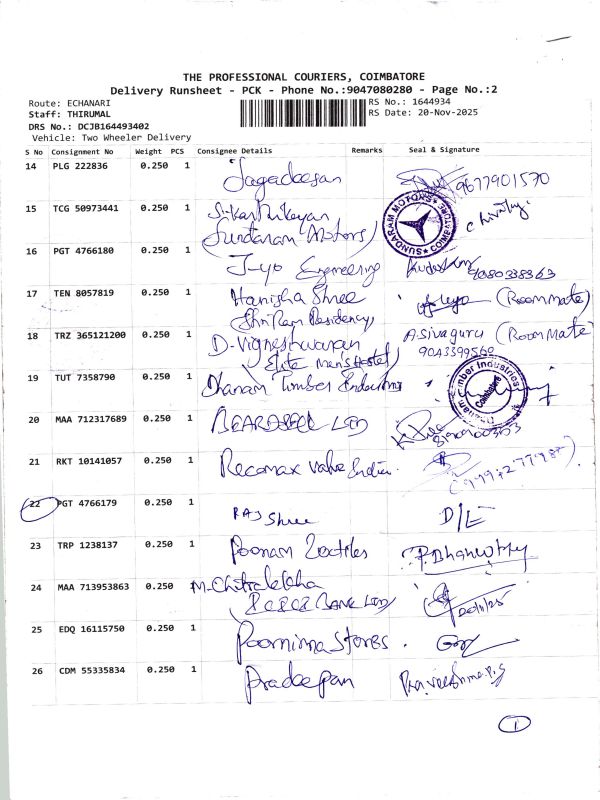 THE PROFESSIONAL COURIERS, COIMBATORE
Delivery Runsheet - PCK - Phone No.:9047080280 - Page No.:2
Route: ECHANARI
RS No.: 1644934
Staff: THIRUMAL
RS Date: 20-Nov-2025
DRS No.: DCJB164493402
Vehicle: Two Wheeler Delivery
S No Consignment No Weight PCS Consignee Details Remarks Seal & Signature
14 PLG 222836 0.250 1 Jagadeesan 9677901570
15 TCG 50973441 0.250 1 S.Karthikeyan
(Sundaram Motors)
SUNDARAM MOTORS COIMBATORE
16 PGT 4766180 0.250 1 J-yo Engineering
17 TEN 8057819 0.250 1 Hanisha Shree (Roommate)
Shri Ram Residency
18 TRZ 365121200 0.250 1 D. Vigneshwaran A.Sivaguru (RoomMate)
(Elite Men's Hostel) 9043399560
19 TUT 7358790 0.250 1 Dhanam Timber Industries
Dhanam Timber Industries Coimbatore
20 MAA 712317689 0.250 1 BEARDSELL LTD
21 RKT 10141057 0.250 1 Recomax Valve India.
22 PGT 4766179 0.250 1 RAJ Shree D/L
23 TRP 1238137 0.250 1 Poonam Textiles
24 MAA 713953863 0.250 1 M-Chitralekha
BANK LTD) 20/11/25
25 EDQ 16115750 0.250 1 Poornima Stores.
26 CDM 55335834 0.250 1 Pradeepan
1